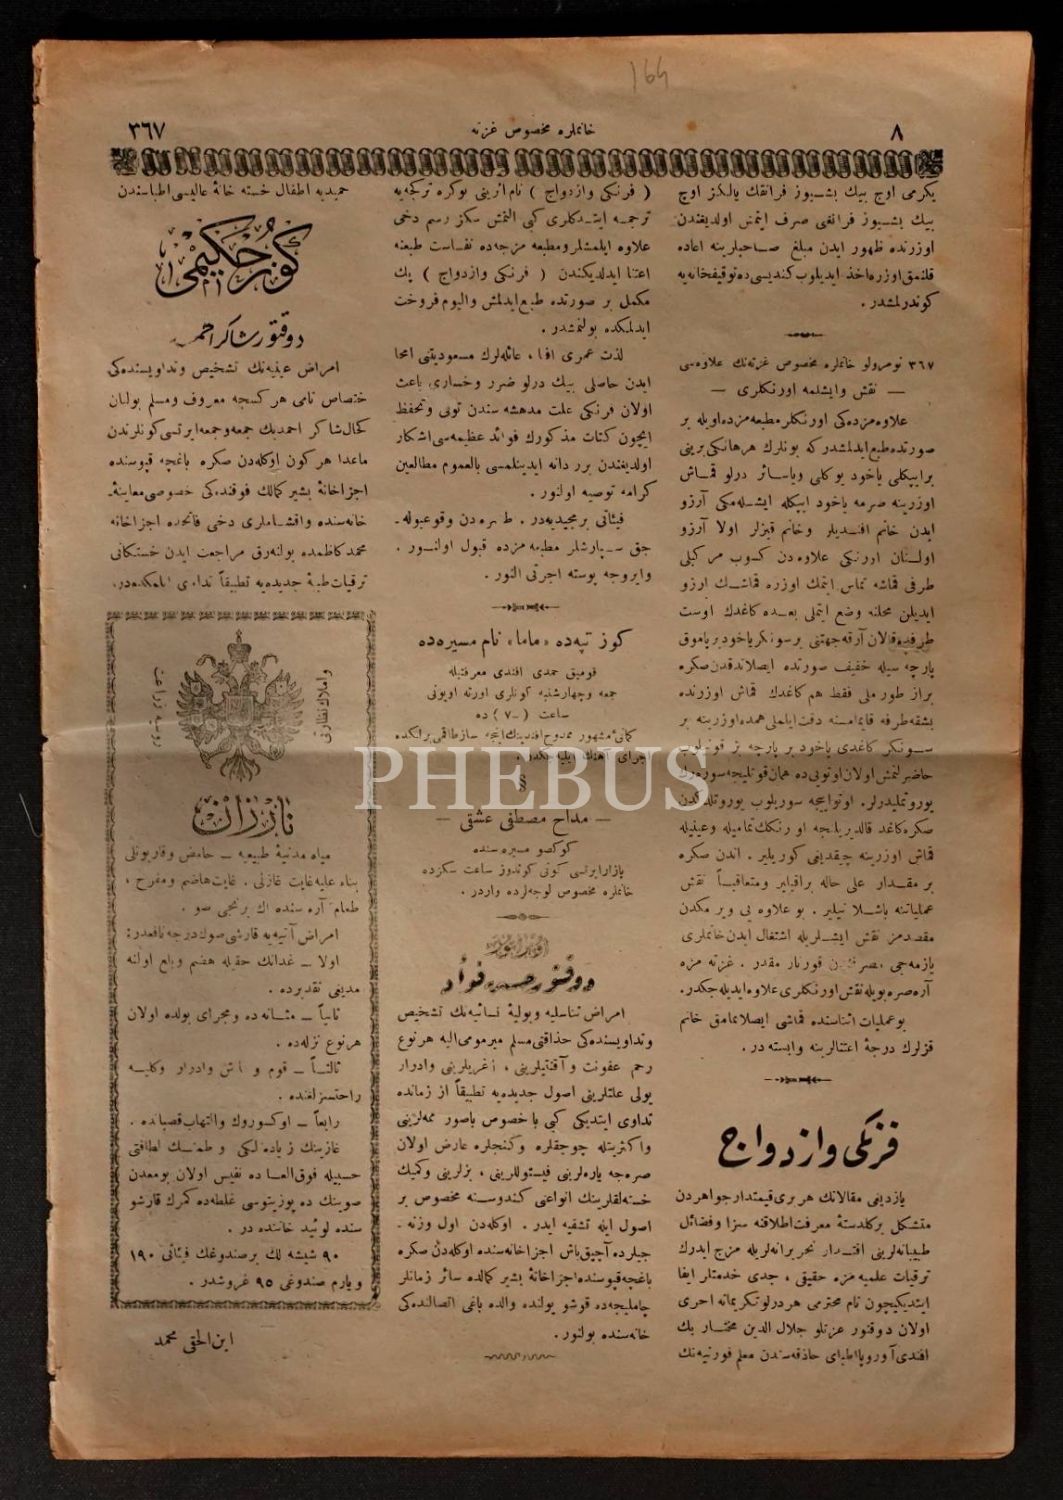 164
٨
خانملره مخصوص غزته
٣٦٧
يكرمى اوچ بيك بشيوز فرانقك يالكز اوچ
بيك بشيوز فرانغى صرف ايتمش اولديغندن
اوزرنده ظهور ايدن مبلغ صاحبلرينه اعاده
قلنمق اوزره اخذ ايديلوب كنديسى ده توقيفخانه يه
كوندرلمشدر .
٣٦٧ نومرولو خانملره مخصوص غزته نك علاوه سى
— نقش وايشلمه اورنكلرى —
علاوه مزده كى اورنكلر مطبعه مزده اويله بر
صورتده طبع ايدلمشدر كه بونلرك هر هانكى برينى
برايپكلى ياخود يوكلى وياسائر درلو قماش
اوزرينه صرمه ياخود ايپكله ايشله مكى آرزو
ايدن خانم افنديلر وخانم قيزلر اولا آرزو
اولنان اورنكى علاوه دن كسوب مركبلى
طرفى قماشه تماس ايتمك اوزره قماشك ارزو
ايديلن محلنه وضع ايتملى بعده كاغدك اوست
طرفنده قالان آرقه جهتنى برسونكر ياخود بر پاموق
پارچه سيله خفيف صورتده ايصلاندقدن صكره
براز طورملى فقط هم كاغدك قماش اوزرنده
بشقه طرفه قايمامسنه دقت ايلملى همده اوزرينه بر
سونكر كاغدى ياخود بر پارچه بز قويملى
حاضرلنمش اولان اوتويى ده همان قوتليجه سوره رك
يوروتمليدرلر . اوتو ايجه سوريلوب يورودلدكدن
صكره كاغد قالديريلنجه اورنكك تماميله وعينيله
قماش اوزرينه چيقديغى كوريلير . اندن صكره
بر مقدار على حاله براقيلير ومتعاقباً نقش
عملياتنه باشلانيلير . بو علاوه يى ويرمكدن
مقصدمز نقش ايشلريله اشتغال ايدن خانملرى
يازمه جى مصرفندن قورتارمقدر . غزته مزه
آره صره بويله نقش اورنكلرى علاوه ايديله جكدر .
بو عمليات اثناسنده قماشى ايصلاتمامق خانم
قيزلرك درجهٔ اعتنالرينه وابسته در .
فرنكى وازدواج
يازديغى مقالاتك هر برى قيمتدار جواهردن
متشكل بر كلدستهٔ معرفت اطلاقنه سزا وفضائل
طبيبانه لرينى اقتدار تحريرانه لريله مزج ايدرك
ترقيات علميه مزه حقيقى ، جدى خدمتلر ايفا
ايتديكيچون نام محترمى هر درلو تكريمانه احرى
اولان دوقتور عزتلو جلال الدين مختار بك
افندى آوروپا اطباى حاذقه سندن معلم فورنيه نك
( فرنكى وازدواج ) نام اثرينى توركجه يه
ترجمه ايتدكلرى كبى التمش سكز رسم دخى
علاوه ايلمشلر ومطبعه مزجه ده نفاست طبعنه
اعتنا ايدلديكندن ( فرنكى وازدواج ) پك
مكمل بر صورتده طبع ايدلمش واليوم فروخت
ايدلمكده بولنمشدر .
لذت عمرى افنا ، عائله لرك مسعوديتنى امحا
ايدن حاصلى بيك درلو ضرر وخسارى باعث
اولان فرنكى علت مدهشه سندن توقى وتحفظ
ايچون كتاب مذكورك فوائد عظيمه سى اشكار
اولديغندن برر دانه ايدينلمسى بالعموم مطالعين
كرامه توصيه اولنور .
فيئاتى بر مجيديه در . طشره دن وقوعبوله‌-
جق سپارشلر مطبعه مزده قبول اولنور .
وايروجه پوسته اجرتى النور .
كوز تپه ده «ماما» نام مسيره ده
قوميق حمدى افندى معرفتيله
جمعه وچهارشنبه كونلرى اورته اويونى
ساعت ( ٧- ) ده
كمانئ مشهور ممدوح افندينك اينجه ساز طاقمى برلكده
اجراى آهنك ايليه جكدر .
§
— مداح مصطفى عشقى —
كوكصو مسيره سنده
پازار ايرتسى كونى كوندوز ساعت سكزده
خانملره مخصوص لوجه لرده واردر .
دوقتور حسن فؤاد
امراض تناسليه وبوليهٔ نسائيه نك تشخيص
وتداويسنده كى حذاقتى مسلم ميرمومى اليه هر نوع
رحم عفونت و آقنتيلرينى ، آغريلرينى وادرار
يولى علتلرينى اصول جديده يه تطبيقاً از زمانده
تداوى ايتديكى كبى باخصوص باصور ممه لرينى
واكثريتله چوجقلره وكنجلره عارض اولان
صره جه ياره لرينى فيستوللرينى ، بزلرينى وكميك
خسته لقلرينك انواعنى كندوسنه مخصوص بر
اصول ايله تشفيه ايدر . اوكله دن اول وزنه‌-
جيلرده آچيق باش اجزاخانه سنده اوكله دن صكره
باغچه قپوسنده اجزاخانهٔ بشير كمالده سائر زمانلر
چامليجه ده قوشو يولنده والده باغى اتصالنده كى
خانه سنده بولنور .
حميديه اطفال خسته خانهٔ عاليسى اطباسندن
كوز حكيمى
دوقتور شاكر احمد
امراض عينيه نك تشخيص وتداويسنده كى
ختصاص تامى هركسجه معروف ومسلم بولنان
كحال شاكر احمدبك جمعه وجمعه ايرتسى كونلرندن
ماعدا هر كون اوكله دن صكره باغچه قپوسنده
اجزاخانهٔ بشير كمالك فوقنده كى خصوصى معاينه‌-
خانه سنده واقشاملرى دخى فاتحده اجزاخانهٔ
محمد كاظمده بولنه رق مراجعت ايدن خستكانى
ترقيات طبيهٔ جديده يه تطبيقاً تداوى ايلمكده در .
واملاك نظارتى
روسيه زراعت
نارزان
مياه معدنيهٔ طبيعيه — حامض وقاربونلى
بناءً عليه غايت غازلى . غايت هاضم ومفرح ،
طعام آره سنده اك برنجى صو .
امراض آتيه يه قارشى صوك درجه نافعدر :
اولا — غدانك حقيله هضم وبلع اولنه
مديغى تقديرده .
ثانياً — مثانه ده ومجراى بولده اولان
هر نوع نزله ده .
ثالثاً — قوم و طاش وادرار وكليه
راحتسزلغنده .
رابعاً — اوكسوروك والتهاب قصباتده .
غازينك زياده لكى و طعمنك لطافتى
حسبيله فوق العاده نفيس اولان بو معدن
صوينك ده پوزيتوسى غلطه ده كمرك قارشو
سنده لوئيد خاننده در .
٩٠ شيشه لك بر صندوغك فيئاتى ١٩٠
و يارم صندوغى ٩٥ غروشدر .
ابن الحقى محمد
PHEBUS